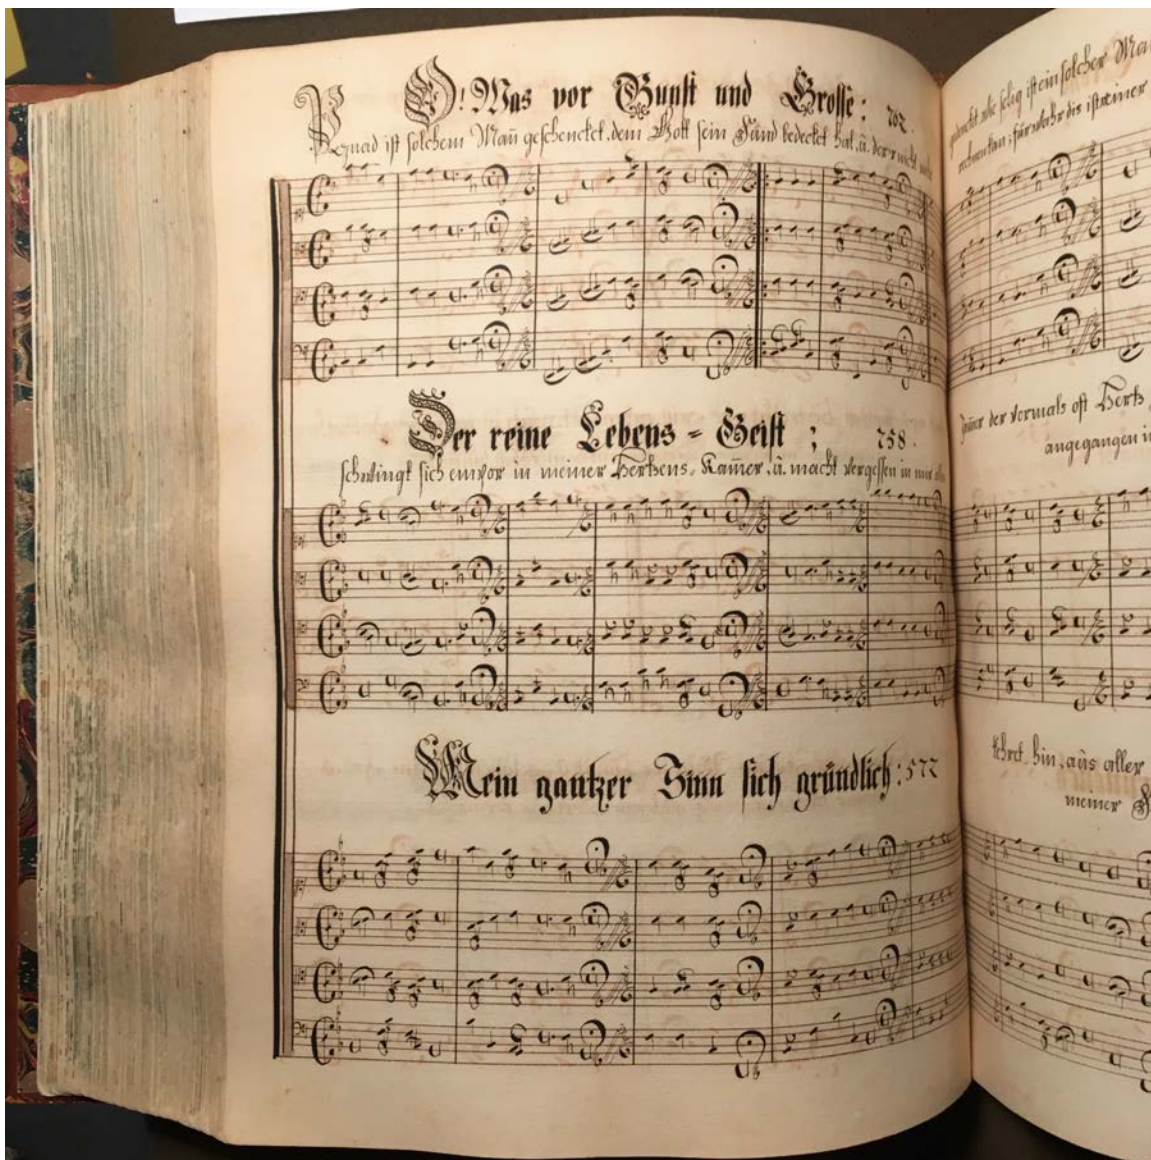 O! Was vor Gunst und Grosse: 762.
Gnad ist solchem Mañ geschencket, dem Gott sein Sünd bedecket hat, ü. der nicht
Der reine Lebens = Geist ; 758.
schwingt sich empor in meiner Hertzens-Kam̃er, ü. macht vergessen in mir allen
Mein gantzer Sinn sich gründlich: 577
gedenckt wie selig ist ein solcher
rechnen kan; fürwahr dis ist einer
Jam̃er der vormals oft Hertz
angegangen
kehret hin, aus aller
meiner